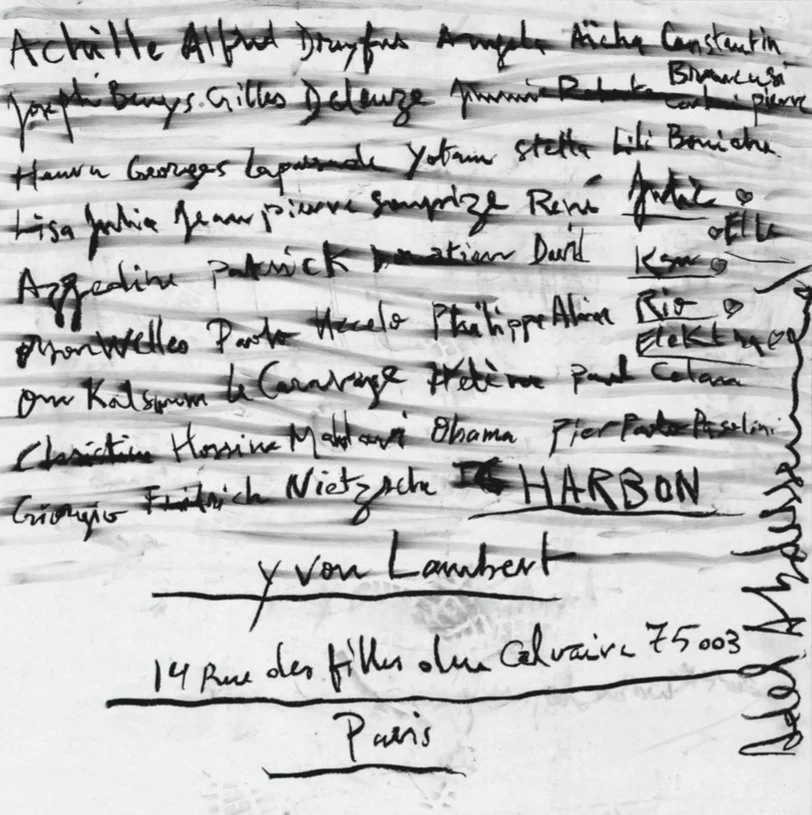 Achille Alfred Dreyfus Angela Aïcha Constantin
Brancusi
Joseph Beuys. Gilles Deleuze Jimmie pierre
Georges Yotam stella Lili Boniche
Lisa Julia Jean pierre René Julie
Elle
Azzedine Patrick David Ken
Orson Welles Paolo Uccelo Philippe Aline Rio
Elektra
Om Kalsoum Le Caravage Hélène paul Celan
Christian Hossine Mahdavi Obama Pier Paolo Pasolini
Giorgio Friedrich Nietzsche CHARBON
yvon Lambert
14 Rue des filles du Calvaire 75003
Paris
Adel Abdessemed